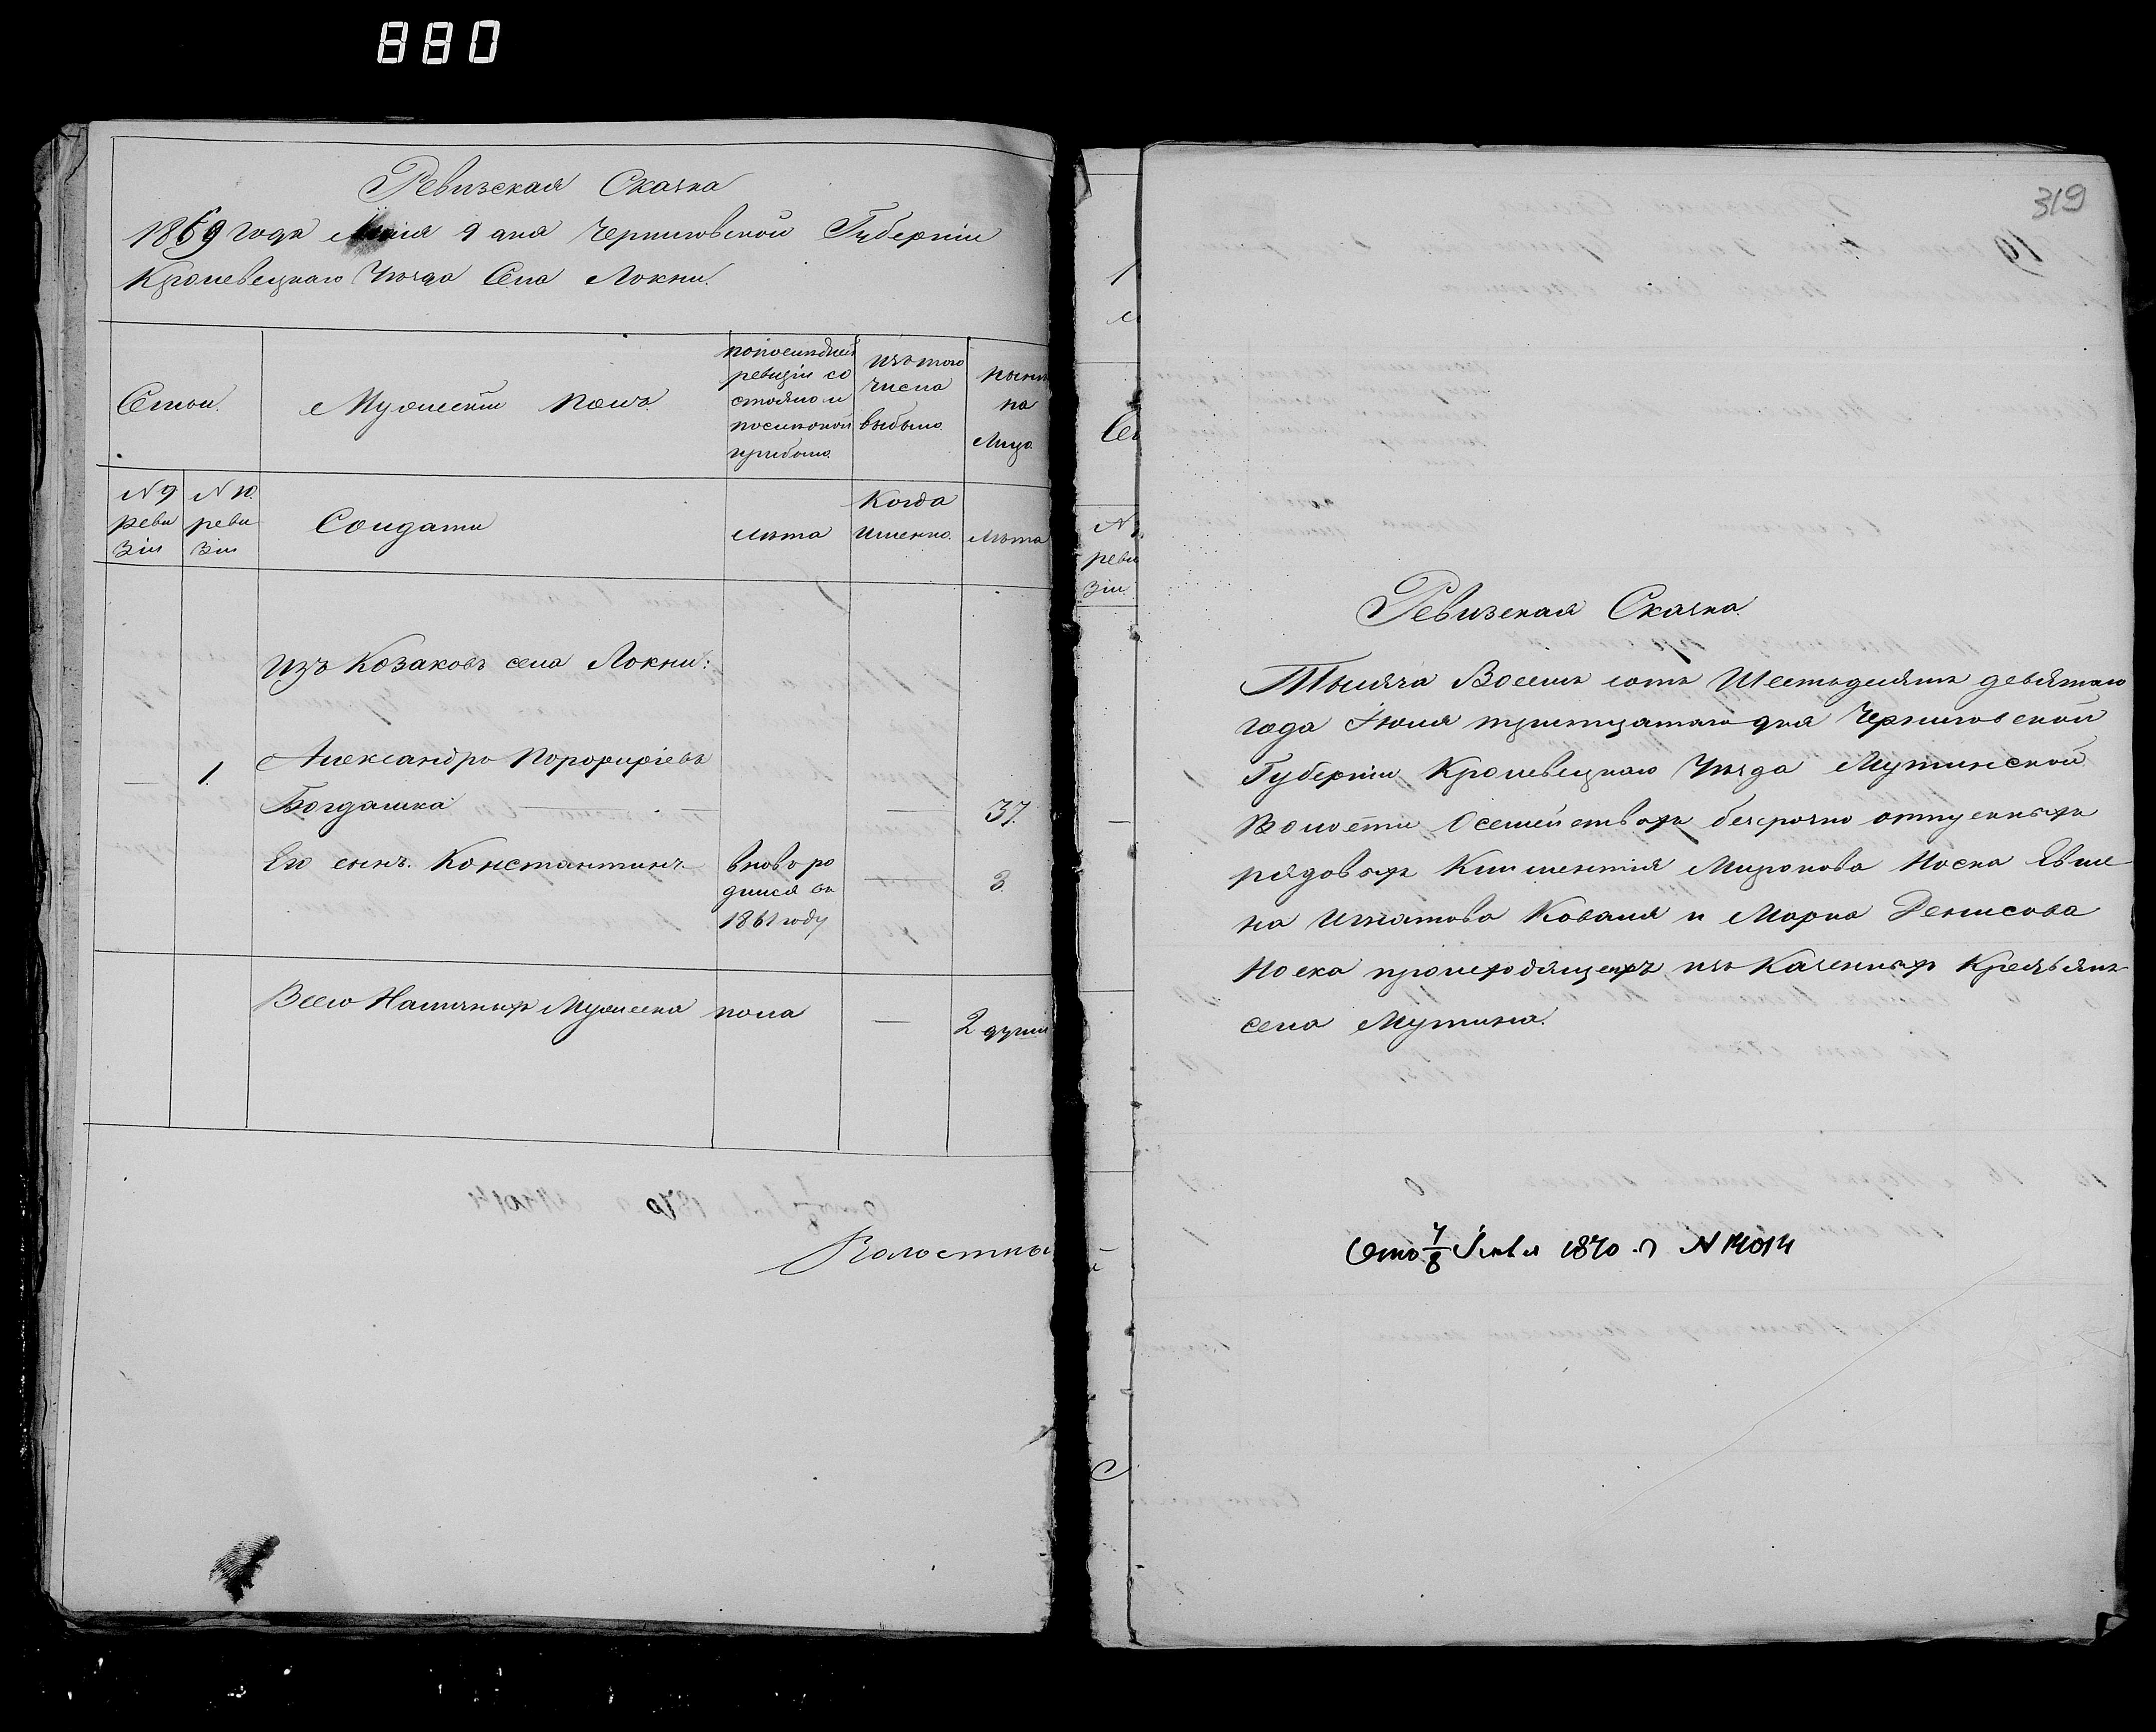 880
Ревизская Сказка
1869 года Июля 9 дня Черниговской Губерніи
Кролевецкаго Уѣзда Села Локни.
Семьи.
Мужескій полъ
по последней
ревизіи со
стояло и
после оной
прибыло.
изъ того
числа
выбыло.
ныне
на
Лицо.
N 9
реви
зіи
N 10.
реви
зіи
Солдати
лѣта
Когда
именно.
лѣта
Изъ Козаковъ села Локни:
1.
Александръ Порфиріевъ
Богдашка — — — 37.
Его сынъ. Константинъ
вновь ро
дился въ
1861 году
—
3
Всего Наличныхъ Мужеска пола — 2 души
Волостны
Се
N
реви
зіи
319
19
Ревизская Сказка.
Тысяча Восемь сотъ Шестьдесятъ девятаго
года Іюля тритцатаго дня Черниговской
Губерніи Кролевецкаго Уѣзда Мутинской
Волости О семействахъ безсрочно отпускныхъ
рядовыхъ Климентія Миронова Носка Явме
на Игнатова Коваля и Марка Денисова
Носка происходящехъ изъ Казенныхъ Крестьянъ
села Мутина.
1870 г N 14014